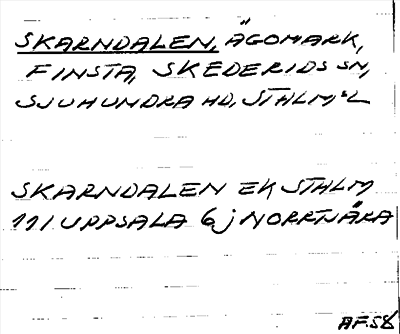 SKARNDALEN, ÄGOMARK,
FINSTA, SKEDERIDS SN,
SJUHUNDRA HD, STHLM:L
SKARNDALEN EK STHLM
111 UPPSALA 6j NORRTJÄRA
AF.58